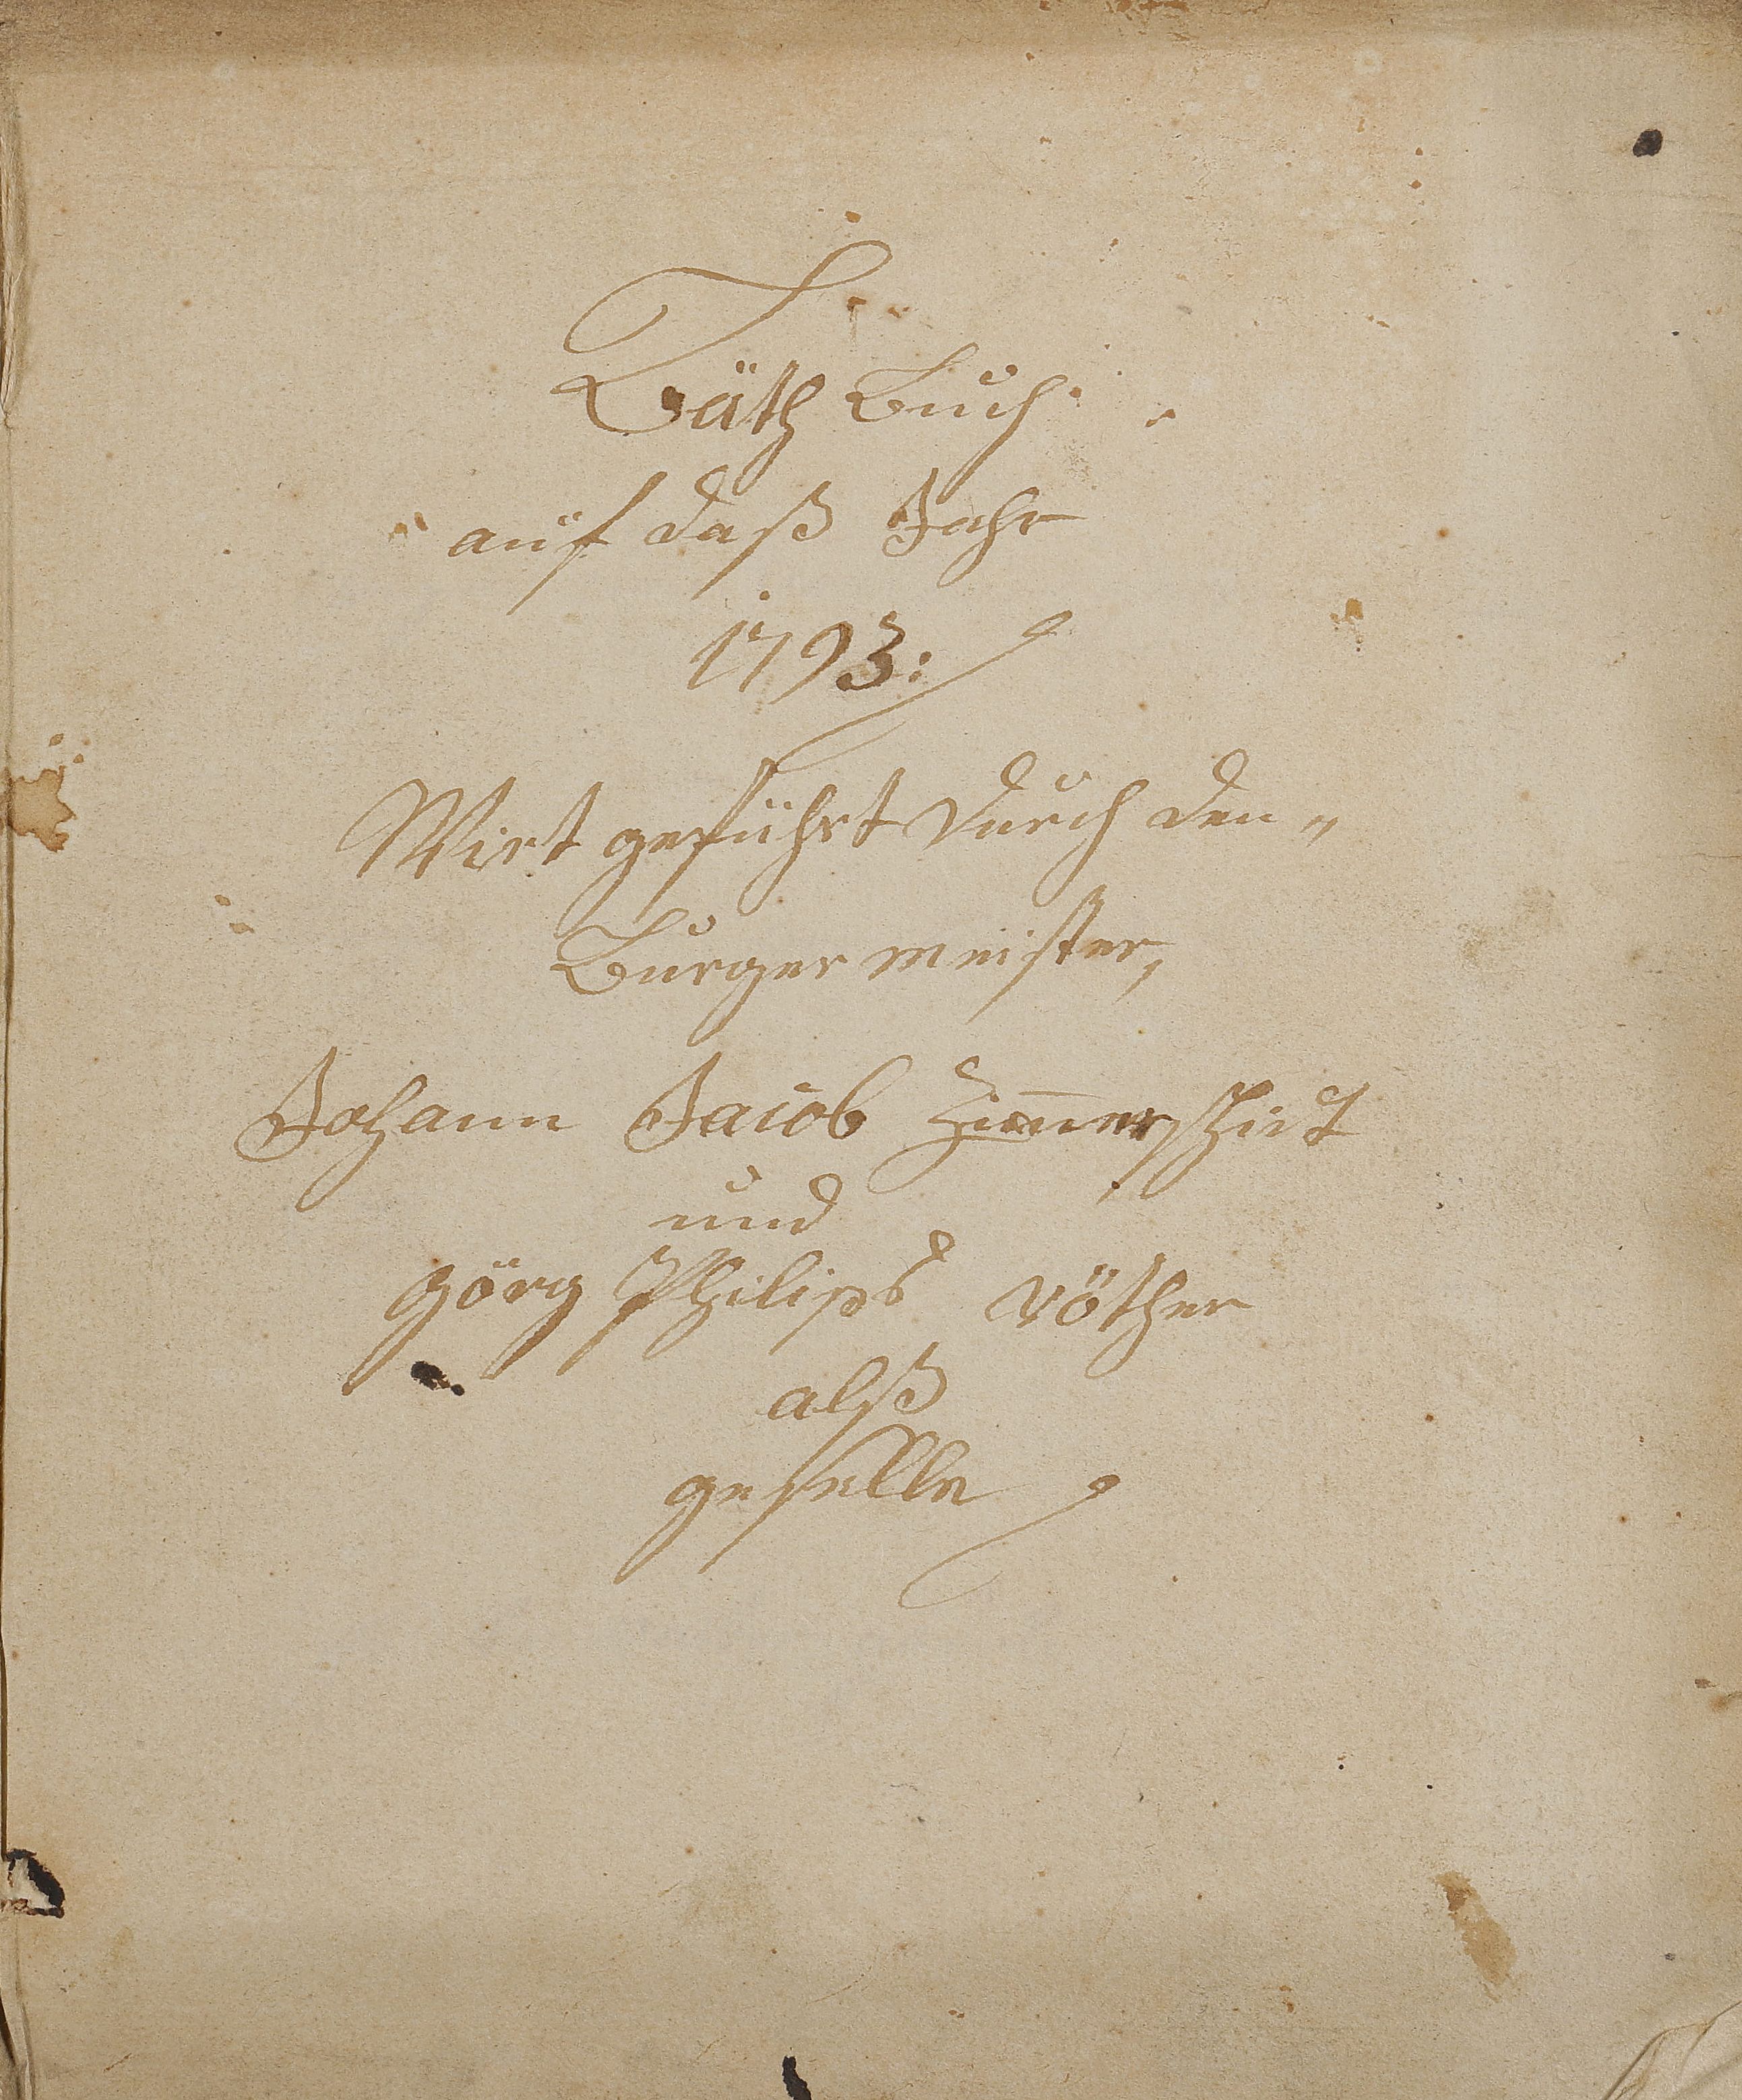 Bäth Buch
auf daß Jahr
1793:
Wirt geführt durch den„
Burger meister,
Johann Jacob
und
görg Philips Röther
alß
geselle